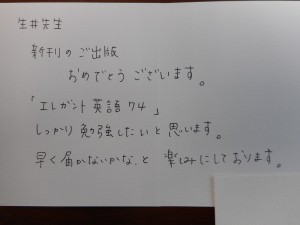 生井先生
新刊のご出版
おめでとうございます。
「エレガント英語74」
しっかり勉強したいと思います。
早く届かないかな、と 楽しみにしております。